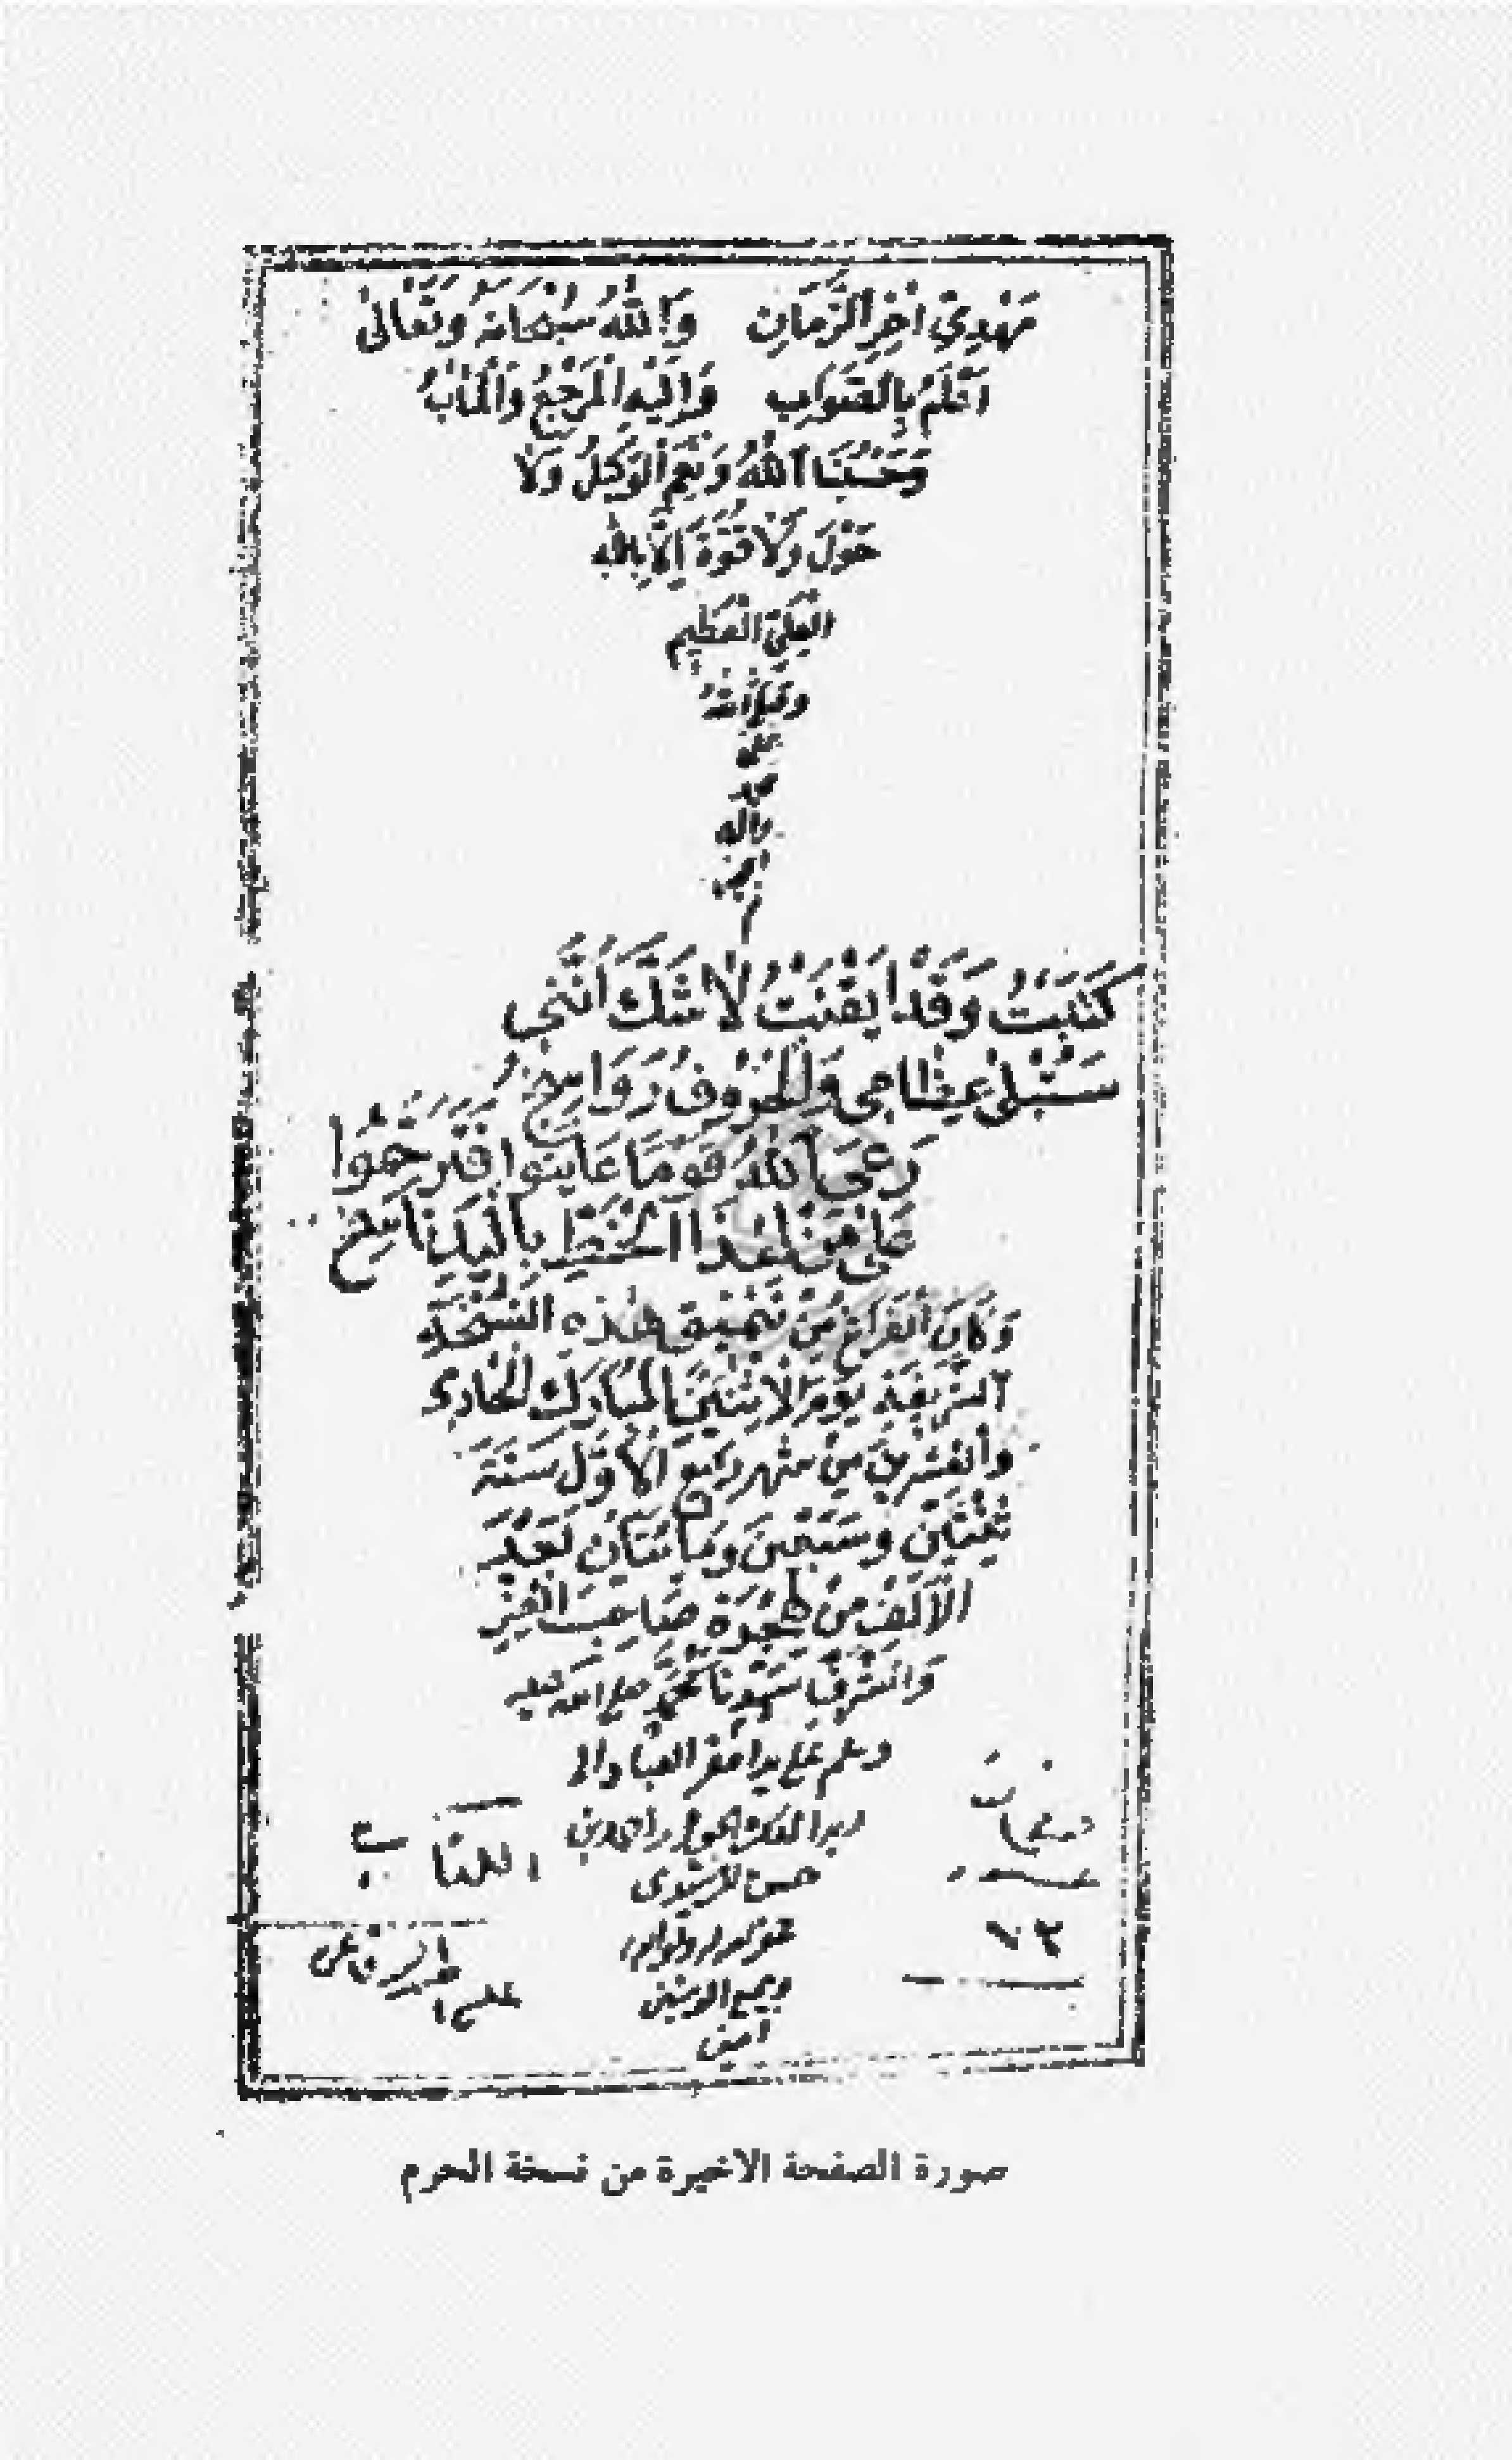 مَهْدِيِّ آخِرِ الزَّمَانِ وَاللهُ سُبْحَانَهُ وَتَعَالَىٰ
اَعْلَمُ بِالصَّوَابِ وَاِلَيْهِ الْمَرْجِعُ وَالْمَآبُ
وَحَسْبُنَا اللهُ وَنِعْمَ الْوَكِيلُ وَلَا
حَوْلَ وَلَا قُوَّةَ اِلَّا بِاللهِ
الْعَلِيِّ الْعَظِيمِ
وصلى الله
على
محمد
وآله
امين
م
كَتَبْتُ وَقَدْ اَيْقَنْتُ لَا شَكَّ اَنَّنِي
سَتُبْلَىٰ عِظَامِي وَالْحُرُوفُ رَوَاسِخُ
رَعَى اللهُ قَوْمًا عَايَنُوا فَتَرَحَّمُوا
عَلَىٰ مَنْ لِهَذَا الْخَطِّ بِالْيَدِ نَاسِخُ
وَكَانَ الْفَرَاغُ مِنْ تَنْمِيقِ هٰذِهِ النُّسْخَةِ
الشَّرِيفَةِ يَوْمَ الْاِثْنَيْنِ الْمُبَارَك الْحَادِي
وَالْعِشْرِينَ مِنْ شهر رَبِيعِ الْاَوَّلِ سَنَةَ
ثِنْتَيْنِ وَسَبْعِينَ وَمِائَتَانِ بَعْدَ
الْاَلْفِ مِنْ هِجْرَةِ صَاحِبِ الْعِزِّ
وَالشَّرَفِ سَيِّدِنَا مُحَمَّدٍ صلى الله عليه
وسلم على يد افقر العباد الى
احمد بن
حسن الرشيدى
غفر له ولوالديه
وجميع المسلمين
امين
الكتاب
٧٣
صورة الصفحة الاخيرة من نسخة الحرم